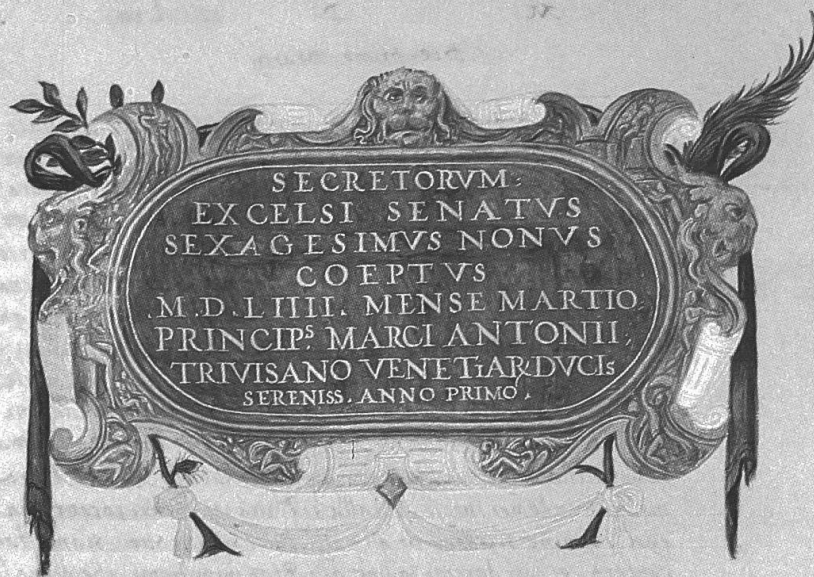 SECRETORVM:
EXCELSI SENATVS
SEXAGESIMVS NONVS
COEPTVS
.M.D.LIIII. MENSE MARTIO.
PRINCIPˢ. MARCI ANTONII,
TRIVISANO VENETIARꝜ DVCIS
SERENISS. ANNO PRIMO.